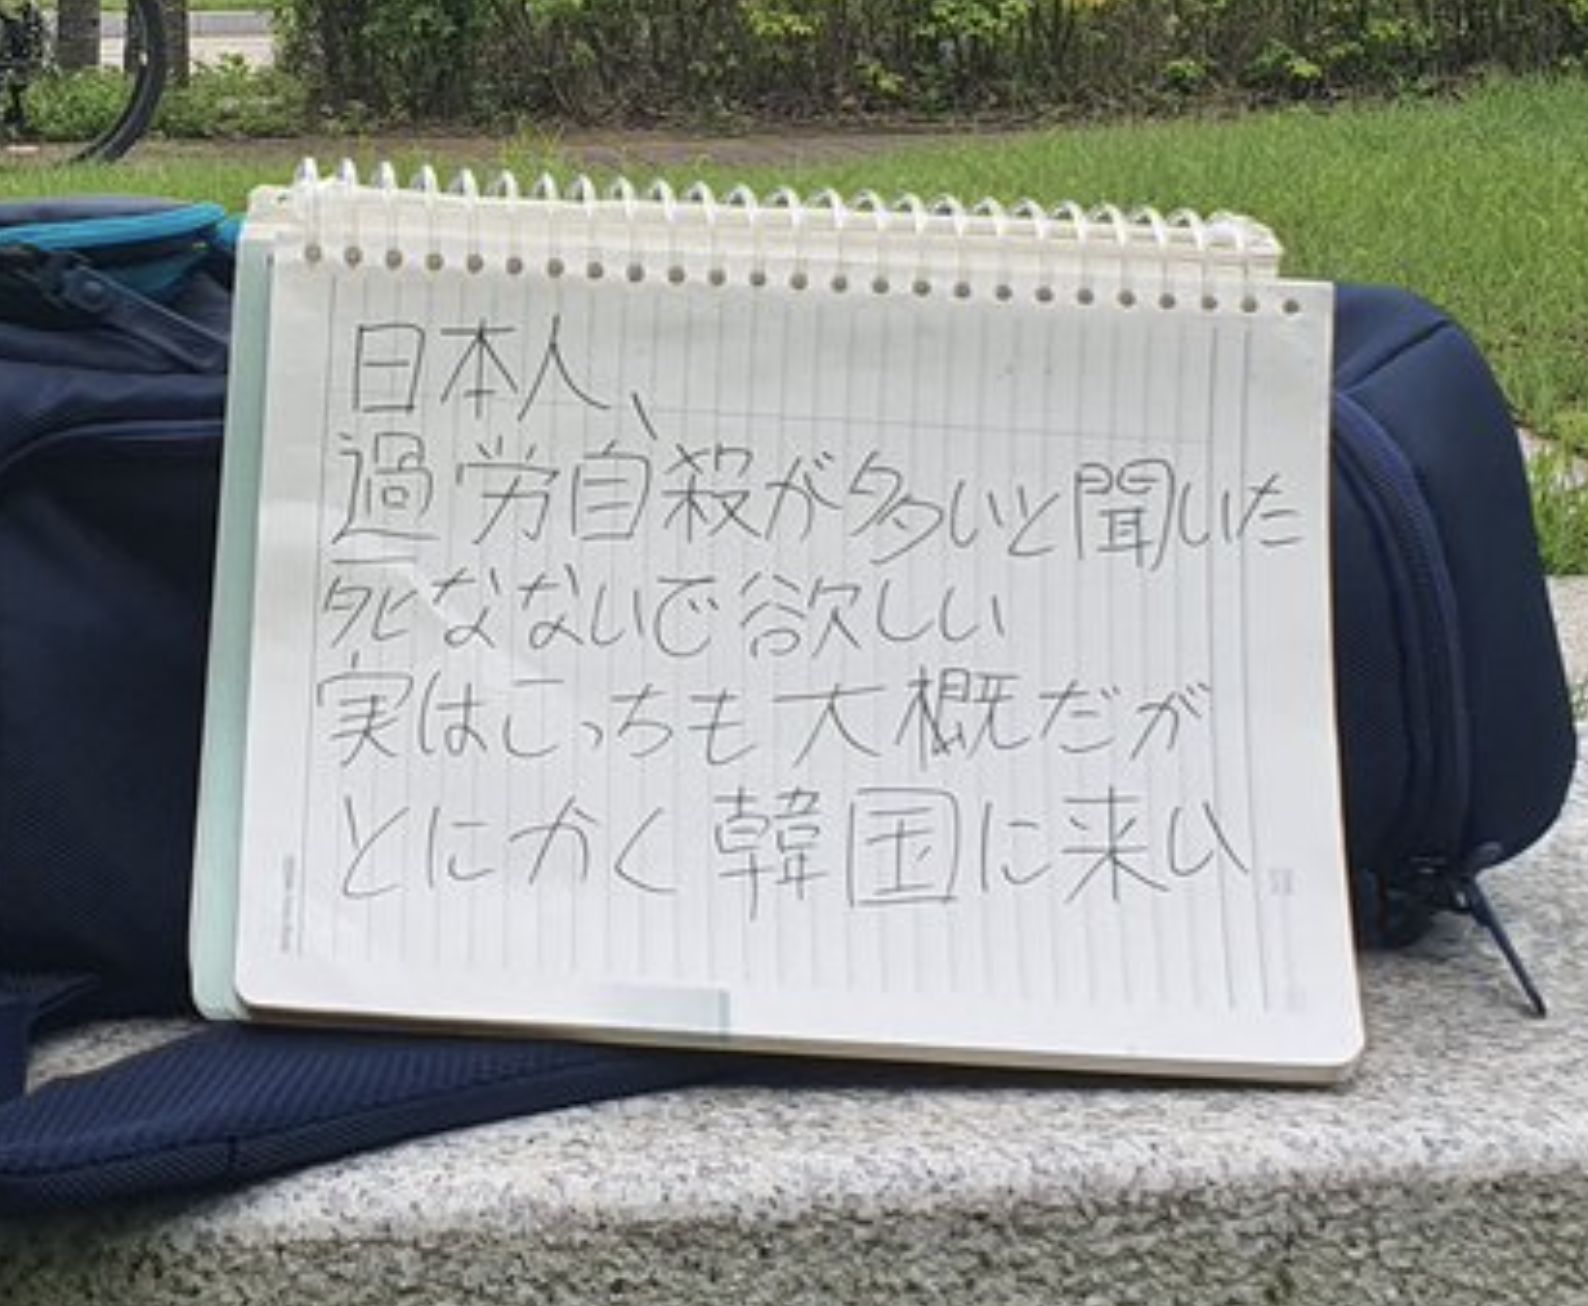 日本人、
過労自殺が多いと聞いた
死なないで欲しい
実はこっちも大概だが
とにかく韓国に来い